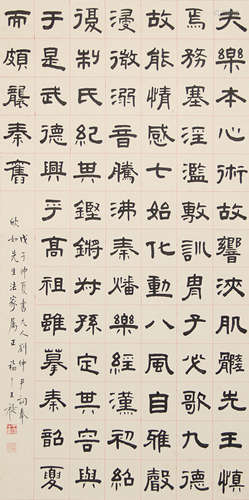 夫樂本心術故響浹肌髓先王慎
焉務塞淫濫敷訓胄子必歌九德
故能情感七始化動八風自雅聲
浸微溺音騰沸秦燔樂經漢初紹
復制氏紀其鏗鏘叔孫定其容與
于是武德興乎高祖雖摹秦韶夏
而頗襲秦舊
戊子仲夏書
欣如先生法家屬正 福厂王禔